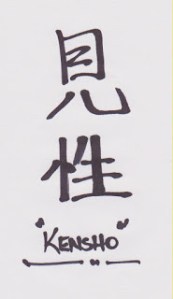 見
性
"KENSHO"